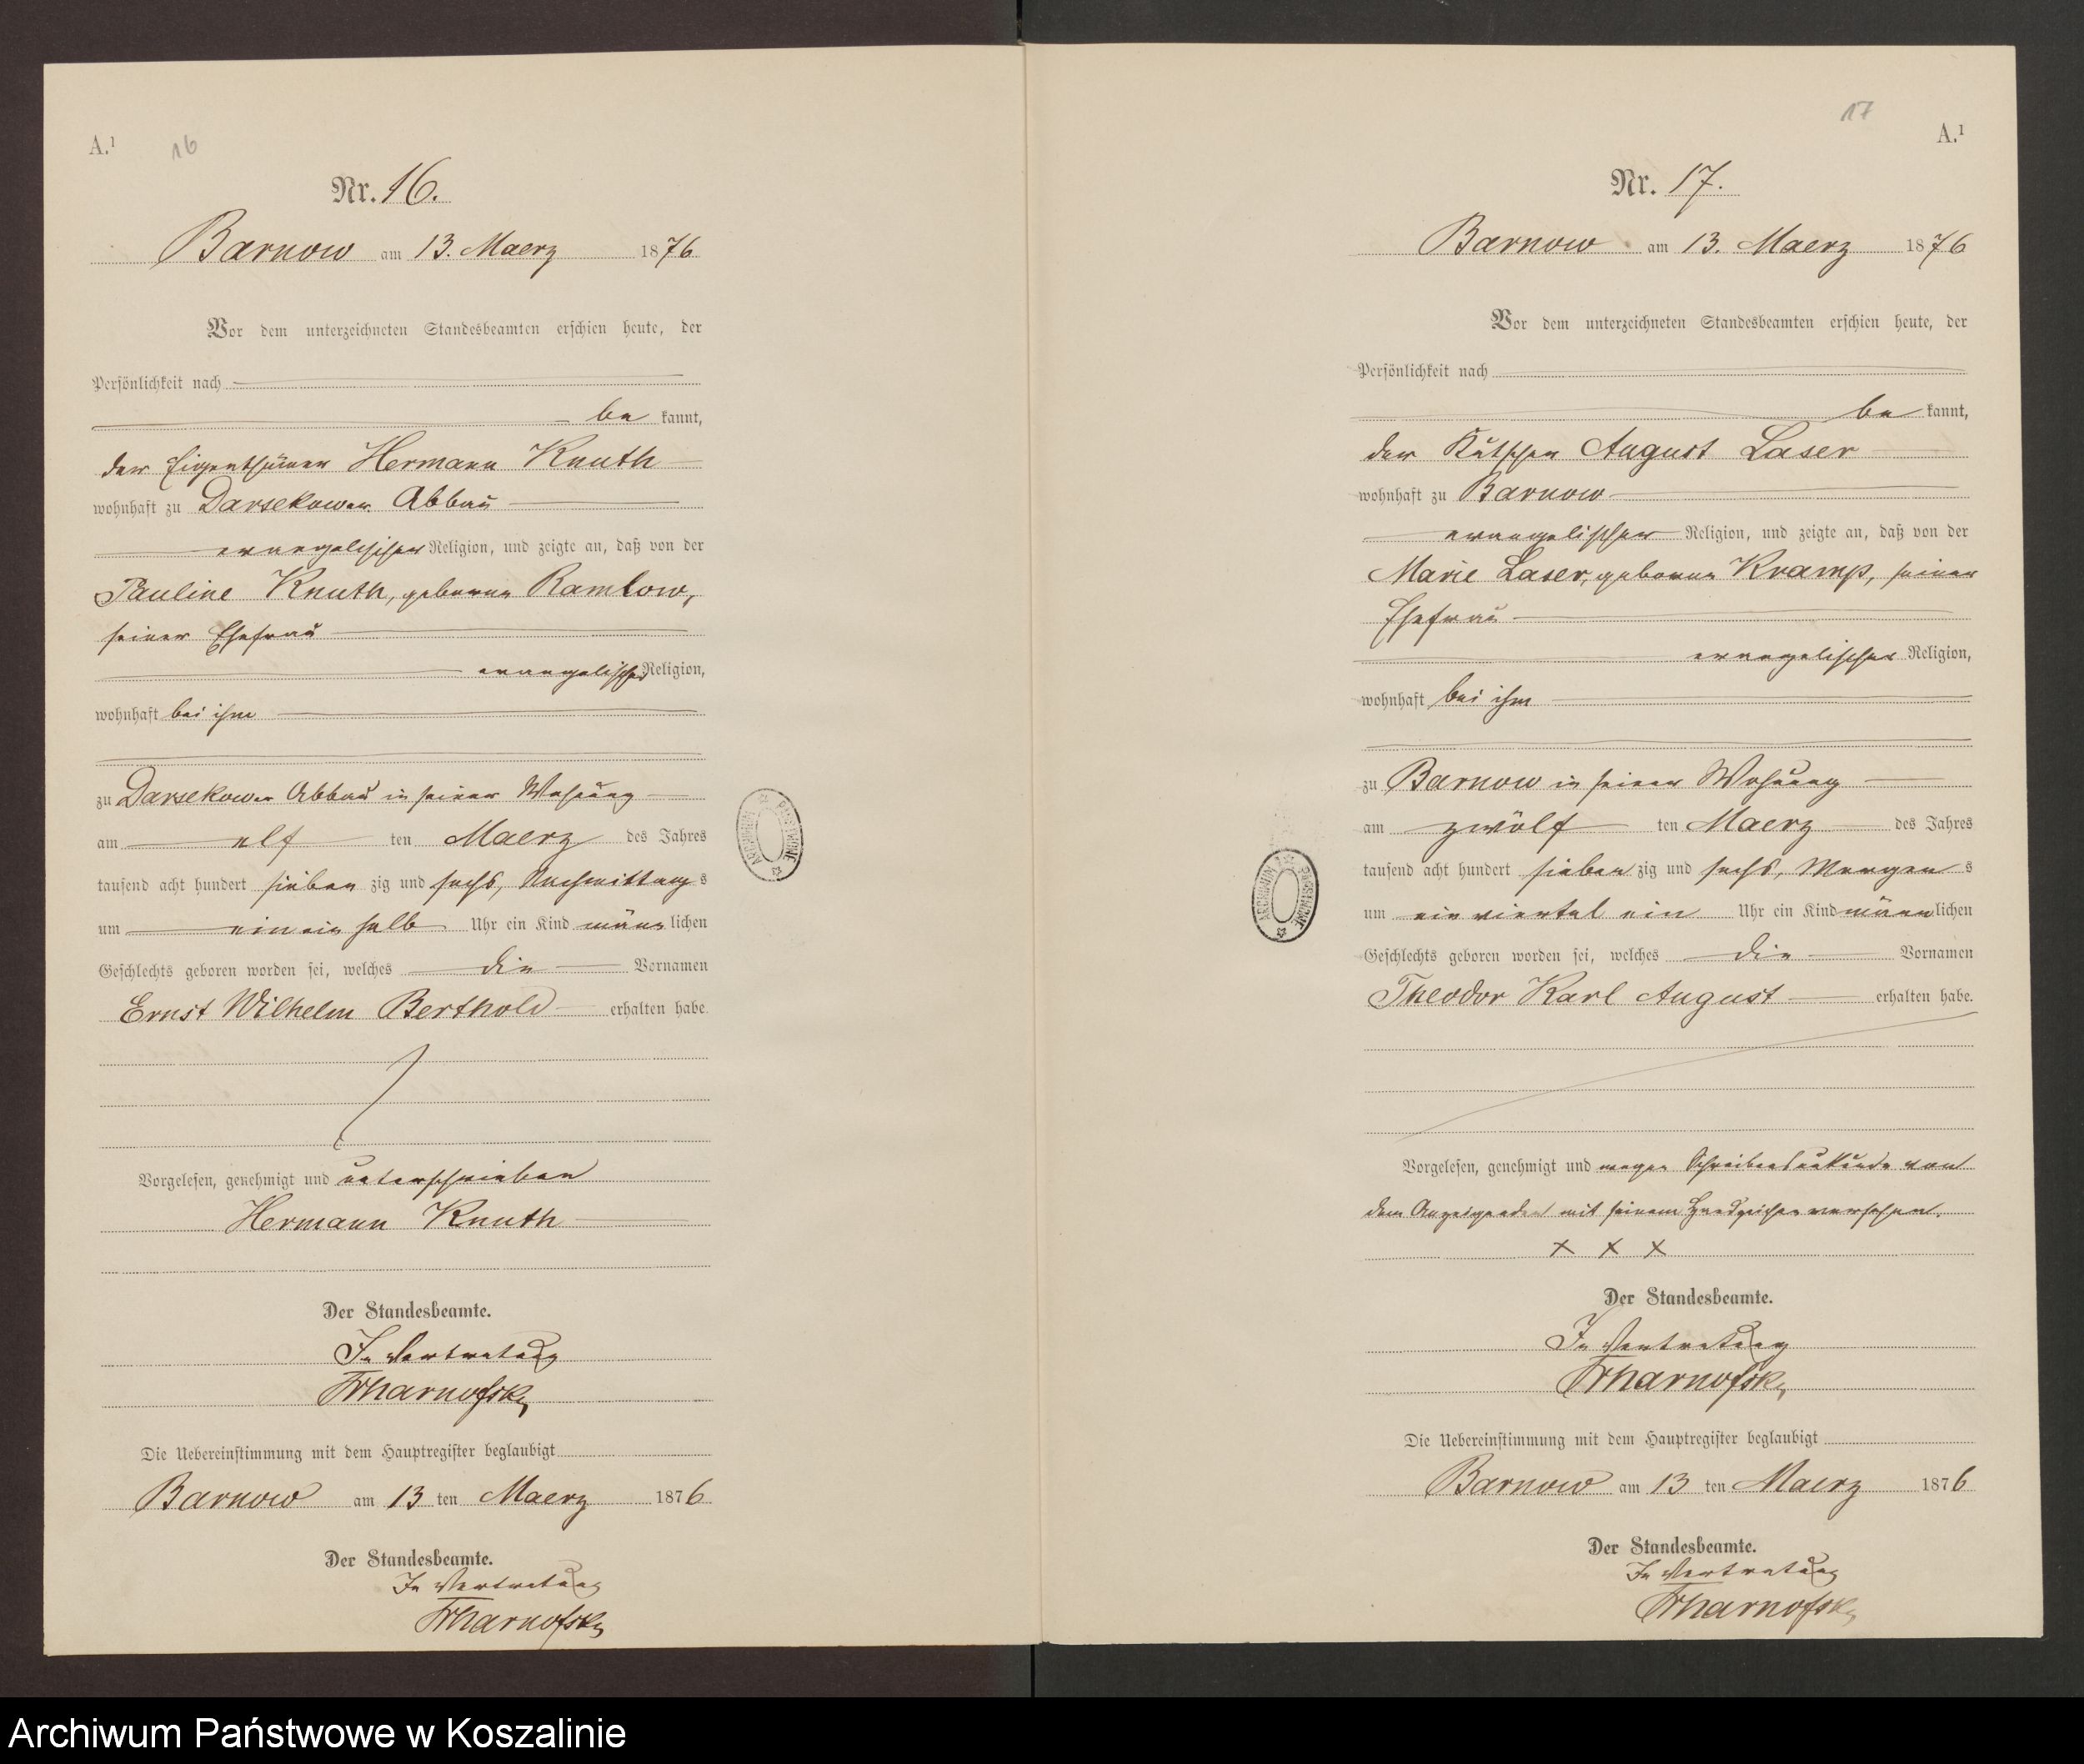 A.¹ 16
Nr. 16.
Barnow am 13. Maerz 1876
Vor dem unterzeichneten Standesbeamten erschien heute, der
Persönlichkeit nach
be kannt,
der Eigenthümer Hermann Knuth
wohnhaft zu Darsekower Abbau
evangelischer Religion, und zeigte an, daß von der
Pauline Knuth, geborene Ramlow,
seiner Ehefrau
evangelischer Religion,
wohnhaft bei ihm
zu Darsekower Abbau in seiner Wohnung
am elf ten Maerz des Jahres
tausend acht hundert sieben zig und sechs, Nachmittag s
um ein ein halb Uhr ein Kind männ lichen
Geschlechts geboren worden sei, welches die Vornamen
Ernst Wilhelm Berthold erhalten habe.
Vorgelesen, genehmigt und unterschrieben
Hermann Knuth
Der Standesbeamte.
In Vertretung
Die Uebereinstimmung mit dem Hauptregister beglaubigt
Barnow am 13 ten Maerz 1876
Der Standesbeamte.
In Vertretung
ARCHIWUM PAŃSTWOWE
17
A.¹
Nr. 17.
Barnow am 13. Maerz 1876
Vor dem unterzeichneten Standesbeamten erschien heute, der
Persönlichkeit nach
be kannt,
der Kutscher August Laser
wohnhaft zu Barnow
evangelischer Religion, und zeigte an, daß von der
Marie Laser, geborene Kramp, seiner
Ehefrau
evangelischer Religion,
wohnhaft bei ihm
zu Barnow in seiner Wohnung
am zwölf ten Maerz des Jahres
tausend acht hundert sieben zig und sechs, Morgen s
um ein viertel ein Uhr ein Kind männ lichen
Geschlechts geboren worden sei, welches die Vornamen
Theodor Karl August erhalten habe.
Vorgelesen, genehmigt und wegen Schreibensunkunde von
dem Anzeigenden mit seinem Handzeichen versehen.
x x x
Der Standesbeamte.
In Vertretung
Die Uebereinstimmung mit dem Hauptregister beglaubigt
Barnow am 13 ten Maerz 1876
Der Standesbeamte.
In Vertretung
ARCHIWUM PAŃSTWOWE
Archiwum Państwowe w Koszalinie